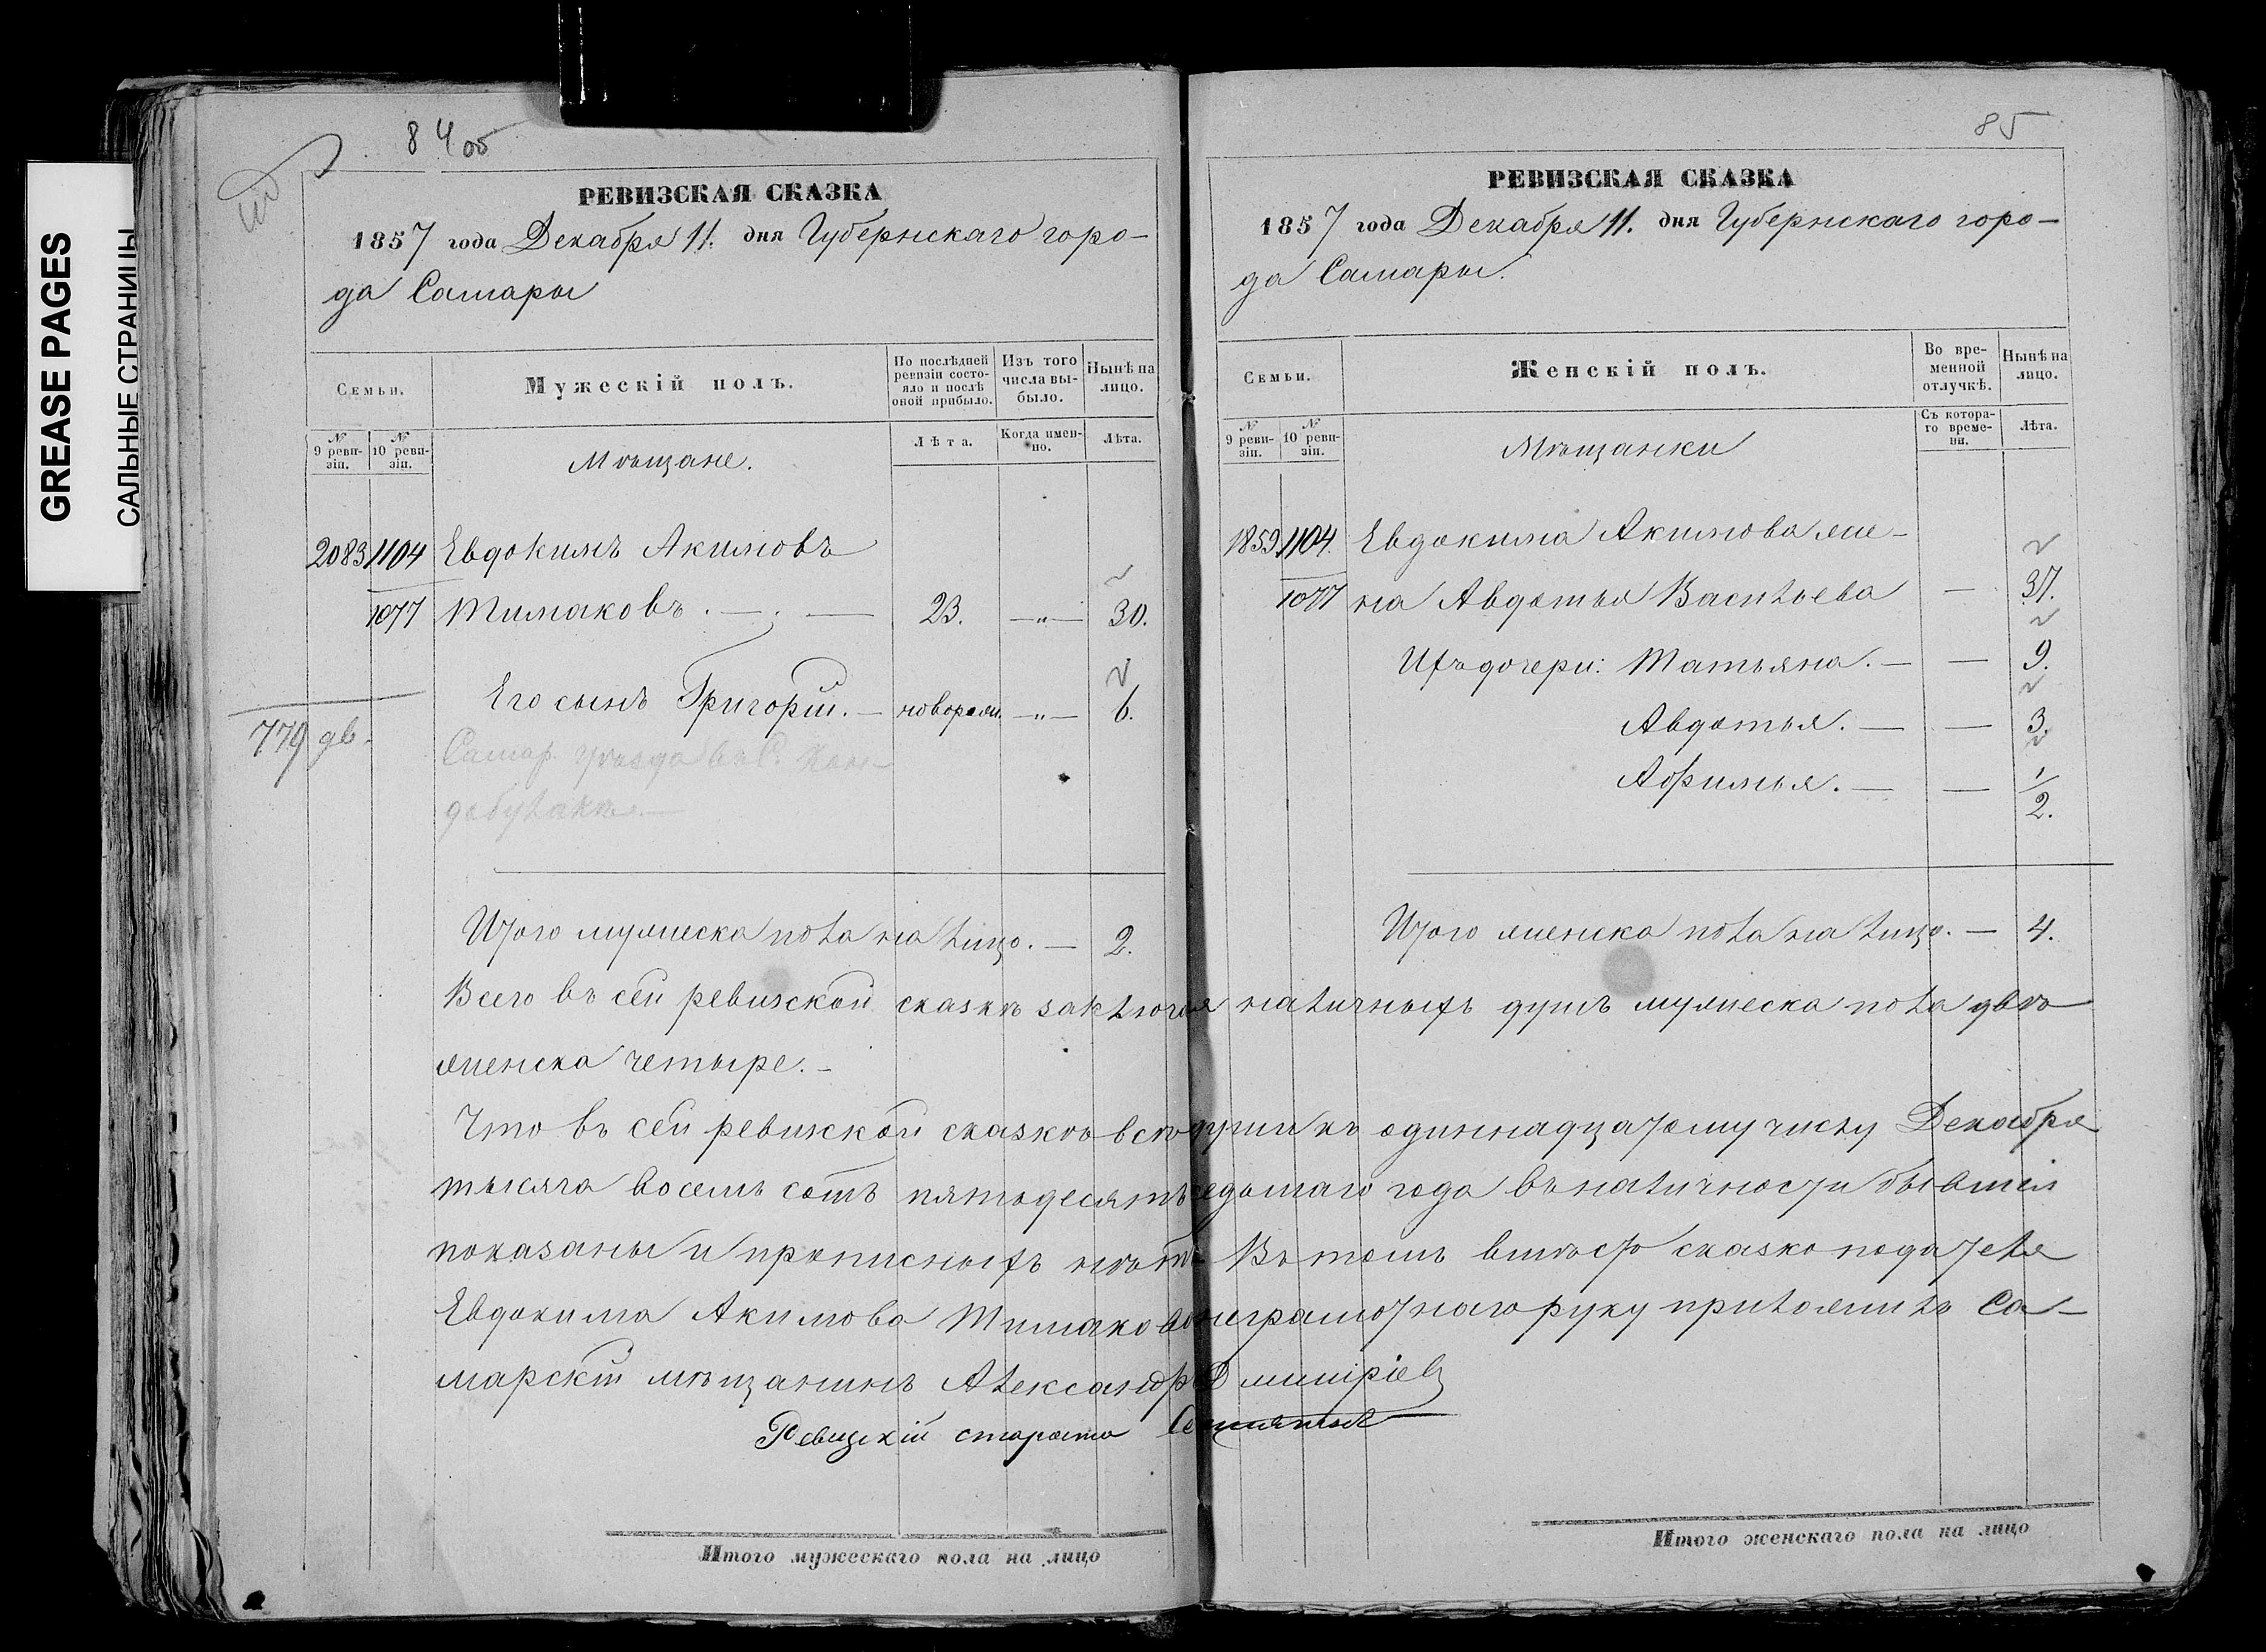 GREASE PAGES
САЛЬНЫЕ СТРАНИЦЫ
84 об
РЕВИЗСКАЯ СКАЗКА
1857 года Декабря 11. дня Губернскаго горо-
да Самары
Семьи.
Мужескій полъ.
По послѣдней ревизіи состояло и послѣ оной прибыло.
Изъ того числа выбыло.
Нынѣ на лицо.
№ 9 ревизіи.
№ 10 ревизіи.
Мѣщане.
Лѣта.
Когда именно.
Лѣта.
2083 1104 Евдокимъ Акимовъ
1077 Тимаковъ. — 23. —„— 30.
Его сынъ Григорій. — новорож. —„— 6.
779 дв.
Самар. уѣзда въ С.
Итого мужеска пола на лицо. — 2.
85
РЕВИЗСКАЯ СКАЗКА
1857 года Декабря 11. дня Губернскаго горо-
да Самары.
Семьи.
Женскій полъ.
Во временной отлучкѣ.
Нынѣ на лицо.
№ 9 ревизіи.
№ 10 ревизіи.
Мѣщанки
Съ котораго времени.
Лѣта.
1859 1104. Евдокима Акимова же-
1077 на Авдотья Васильева — 37.
Ихъ дочери: Татьяна. — — 9.
Авдотья. — — 3.
Афимья. — — 1/2.
Итого женска пола на лицо. — 4.
Всего въ сей ревизской сказкѣ заключая наличныхъ душъ мужеска пола двѣ
женска четыре. —
Что въ сей ревизской сказкѣ всѣ души къ одиннадцатому числу Декабря
тысяча восемь сотъ пятьдесятъ седьмаго года въ наличности бывшія
показаны и прописныхъ нѣтъ Въ томъ вмѣсто сказкоподателя
Евдокима Акимова Тимакова неграмотнаго руку приложилъ Са-
марскій мѣщанинъ Александръ Дмитріевъ
Ревизскій староста
Итого мужескаго пола на лицо
Итого женскаго пола на лицо